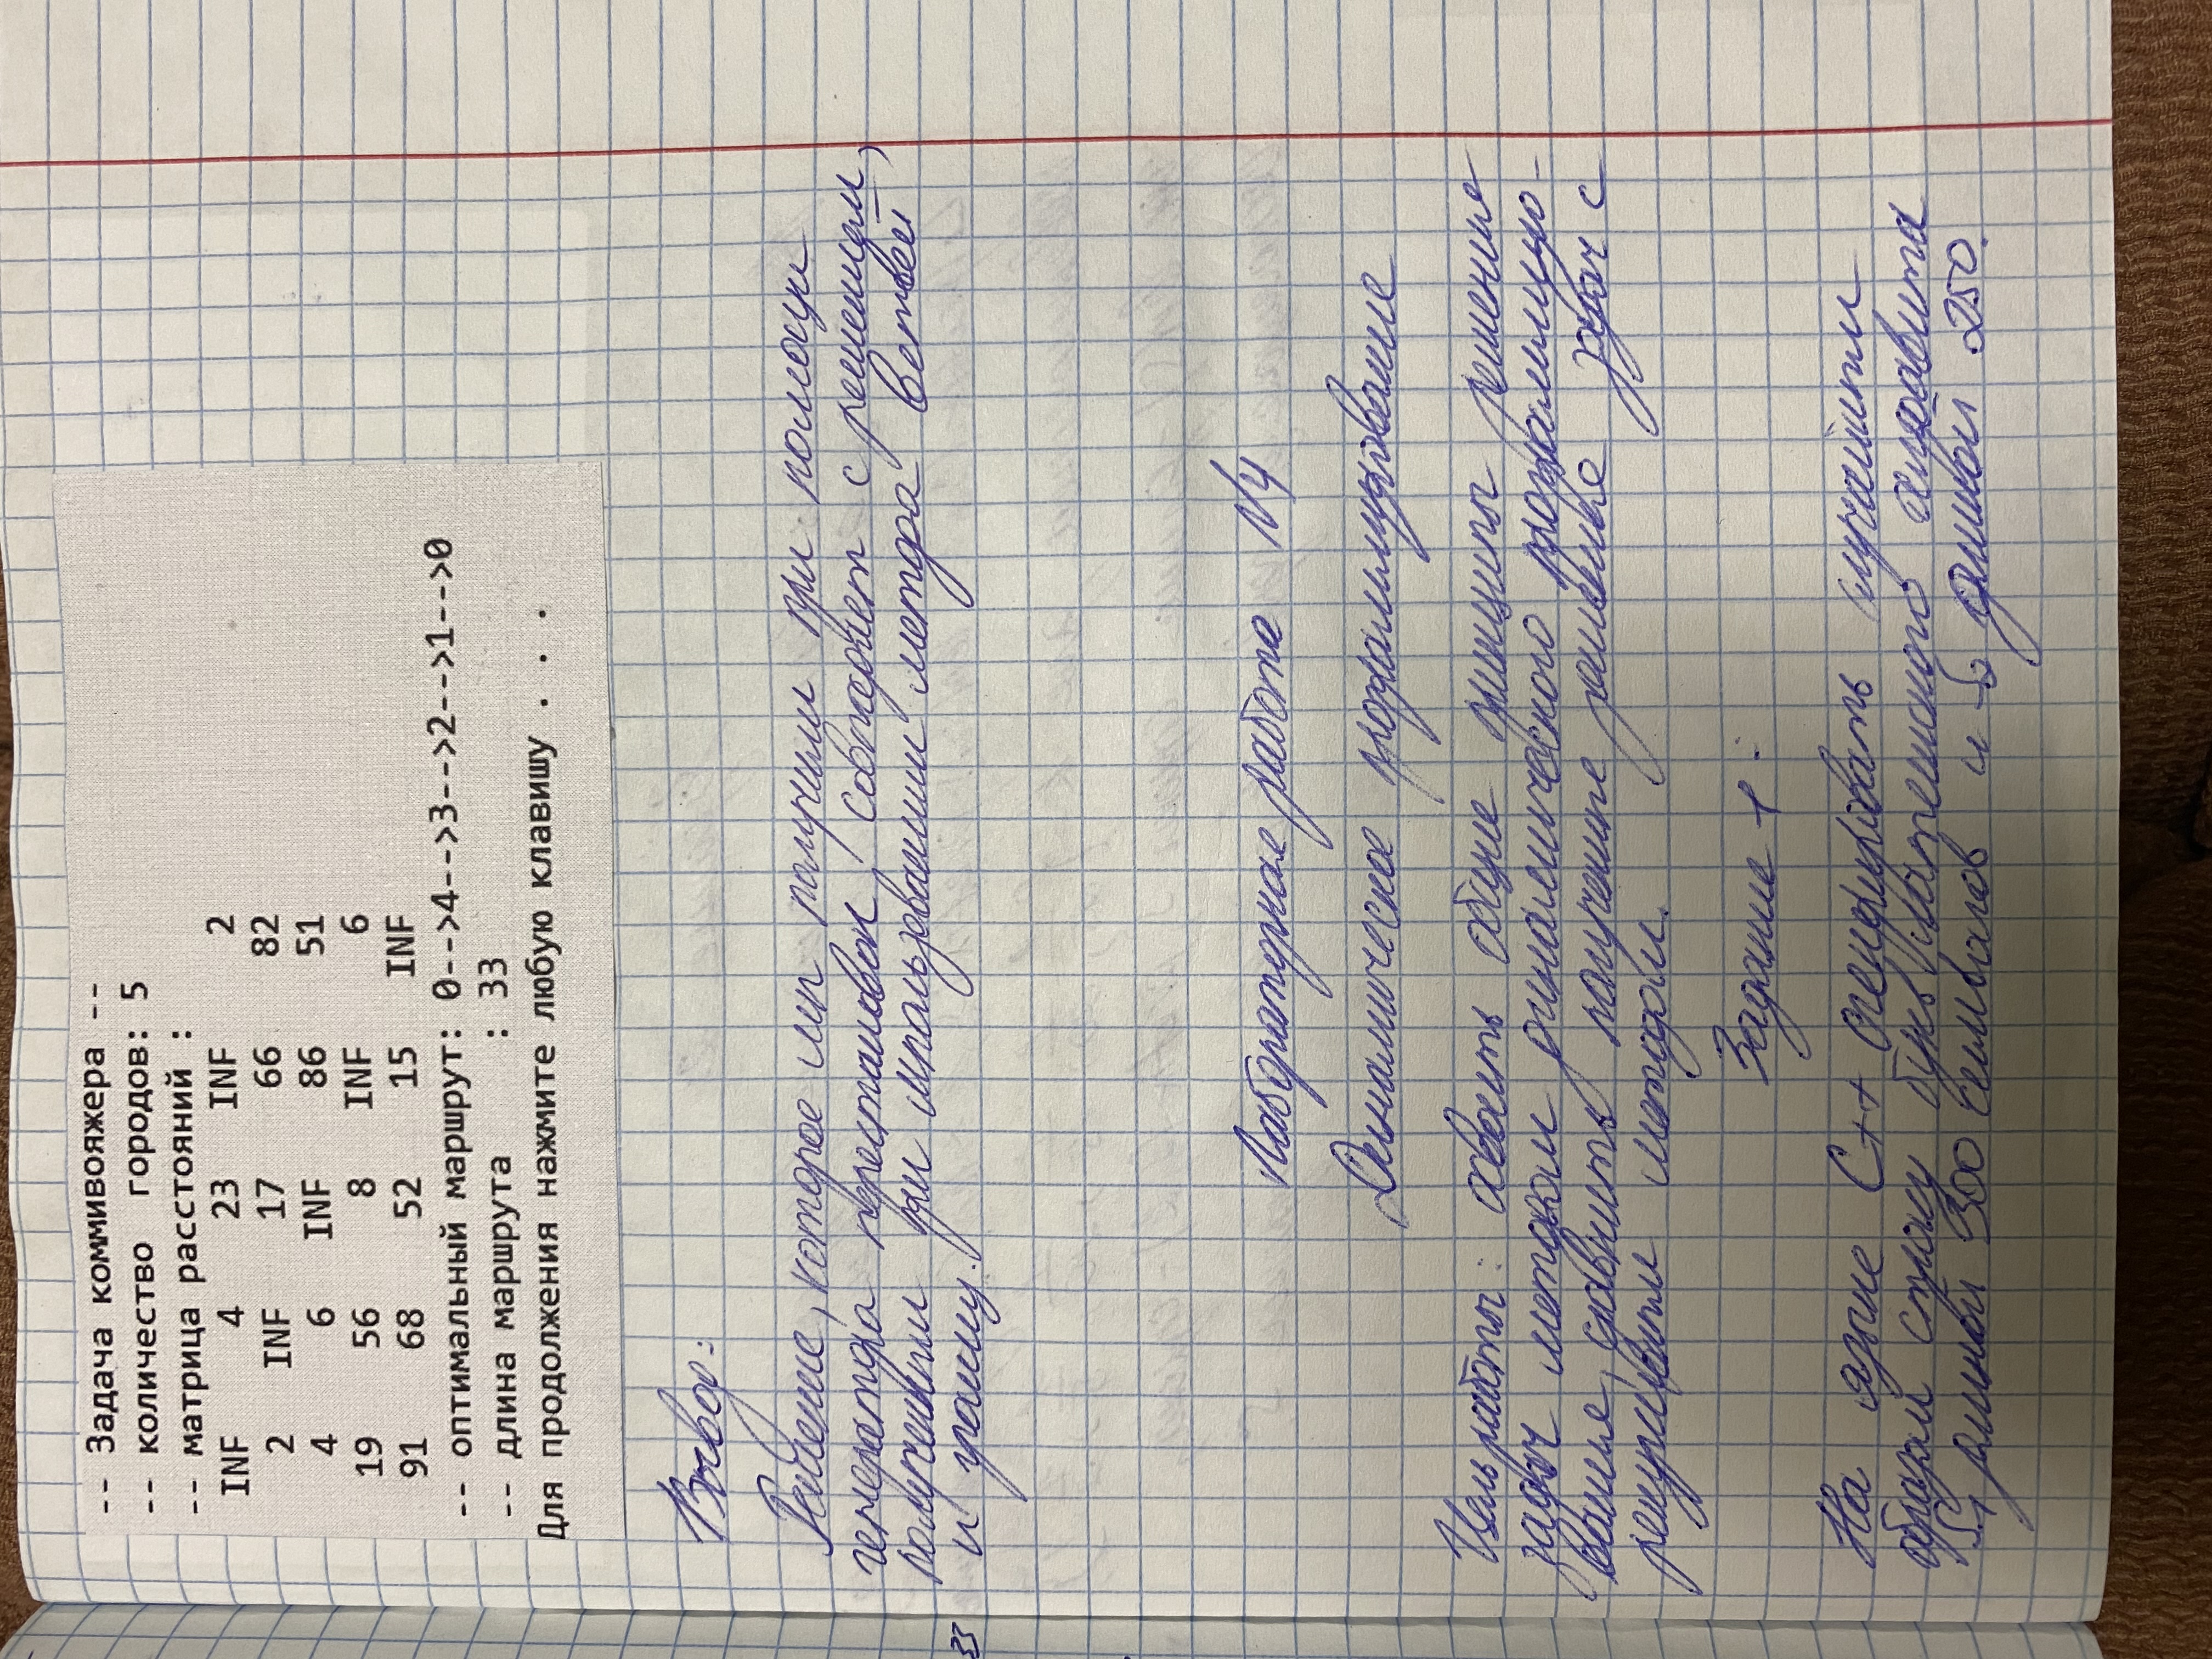 -- Задача коммивояжера --
-- количество  городов: 5
-- матрица расстояний :
INF 4 23 INF 2
2 INF 17 66 82
4 6 INF 86 51
19 56 8 INF 6
91 68 52 15 INF
-- оптимальный маршрут: 0-->4-->3-->2-->1-->0
-- длина маршрута : 33
Для продолжения нажмите любую клавишу . . .
Вывод:
Решение, которое мы получили при помощи
генератора перестановок, совпадает с решением,
полученным при использовании метода ветвей
33 и границ.
Лабораторная работа N4
Динамическое программирование
Цель работы: освоить общие принципы решения
задач методом динамического программиро-
вания, сравнить полученные решения задач с
рекурсивным методом.
Задание 1:
На языке C++ сгенерировать случайным
образом строку букв латинского алфавита
S1 длиной 300 символов и S2 длиной 250.